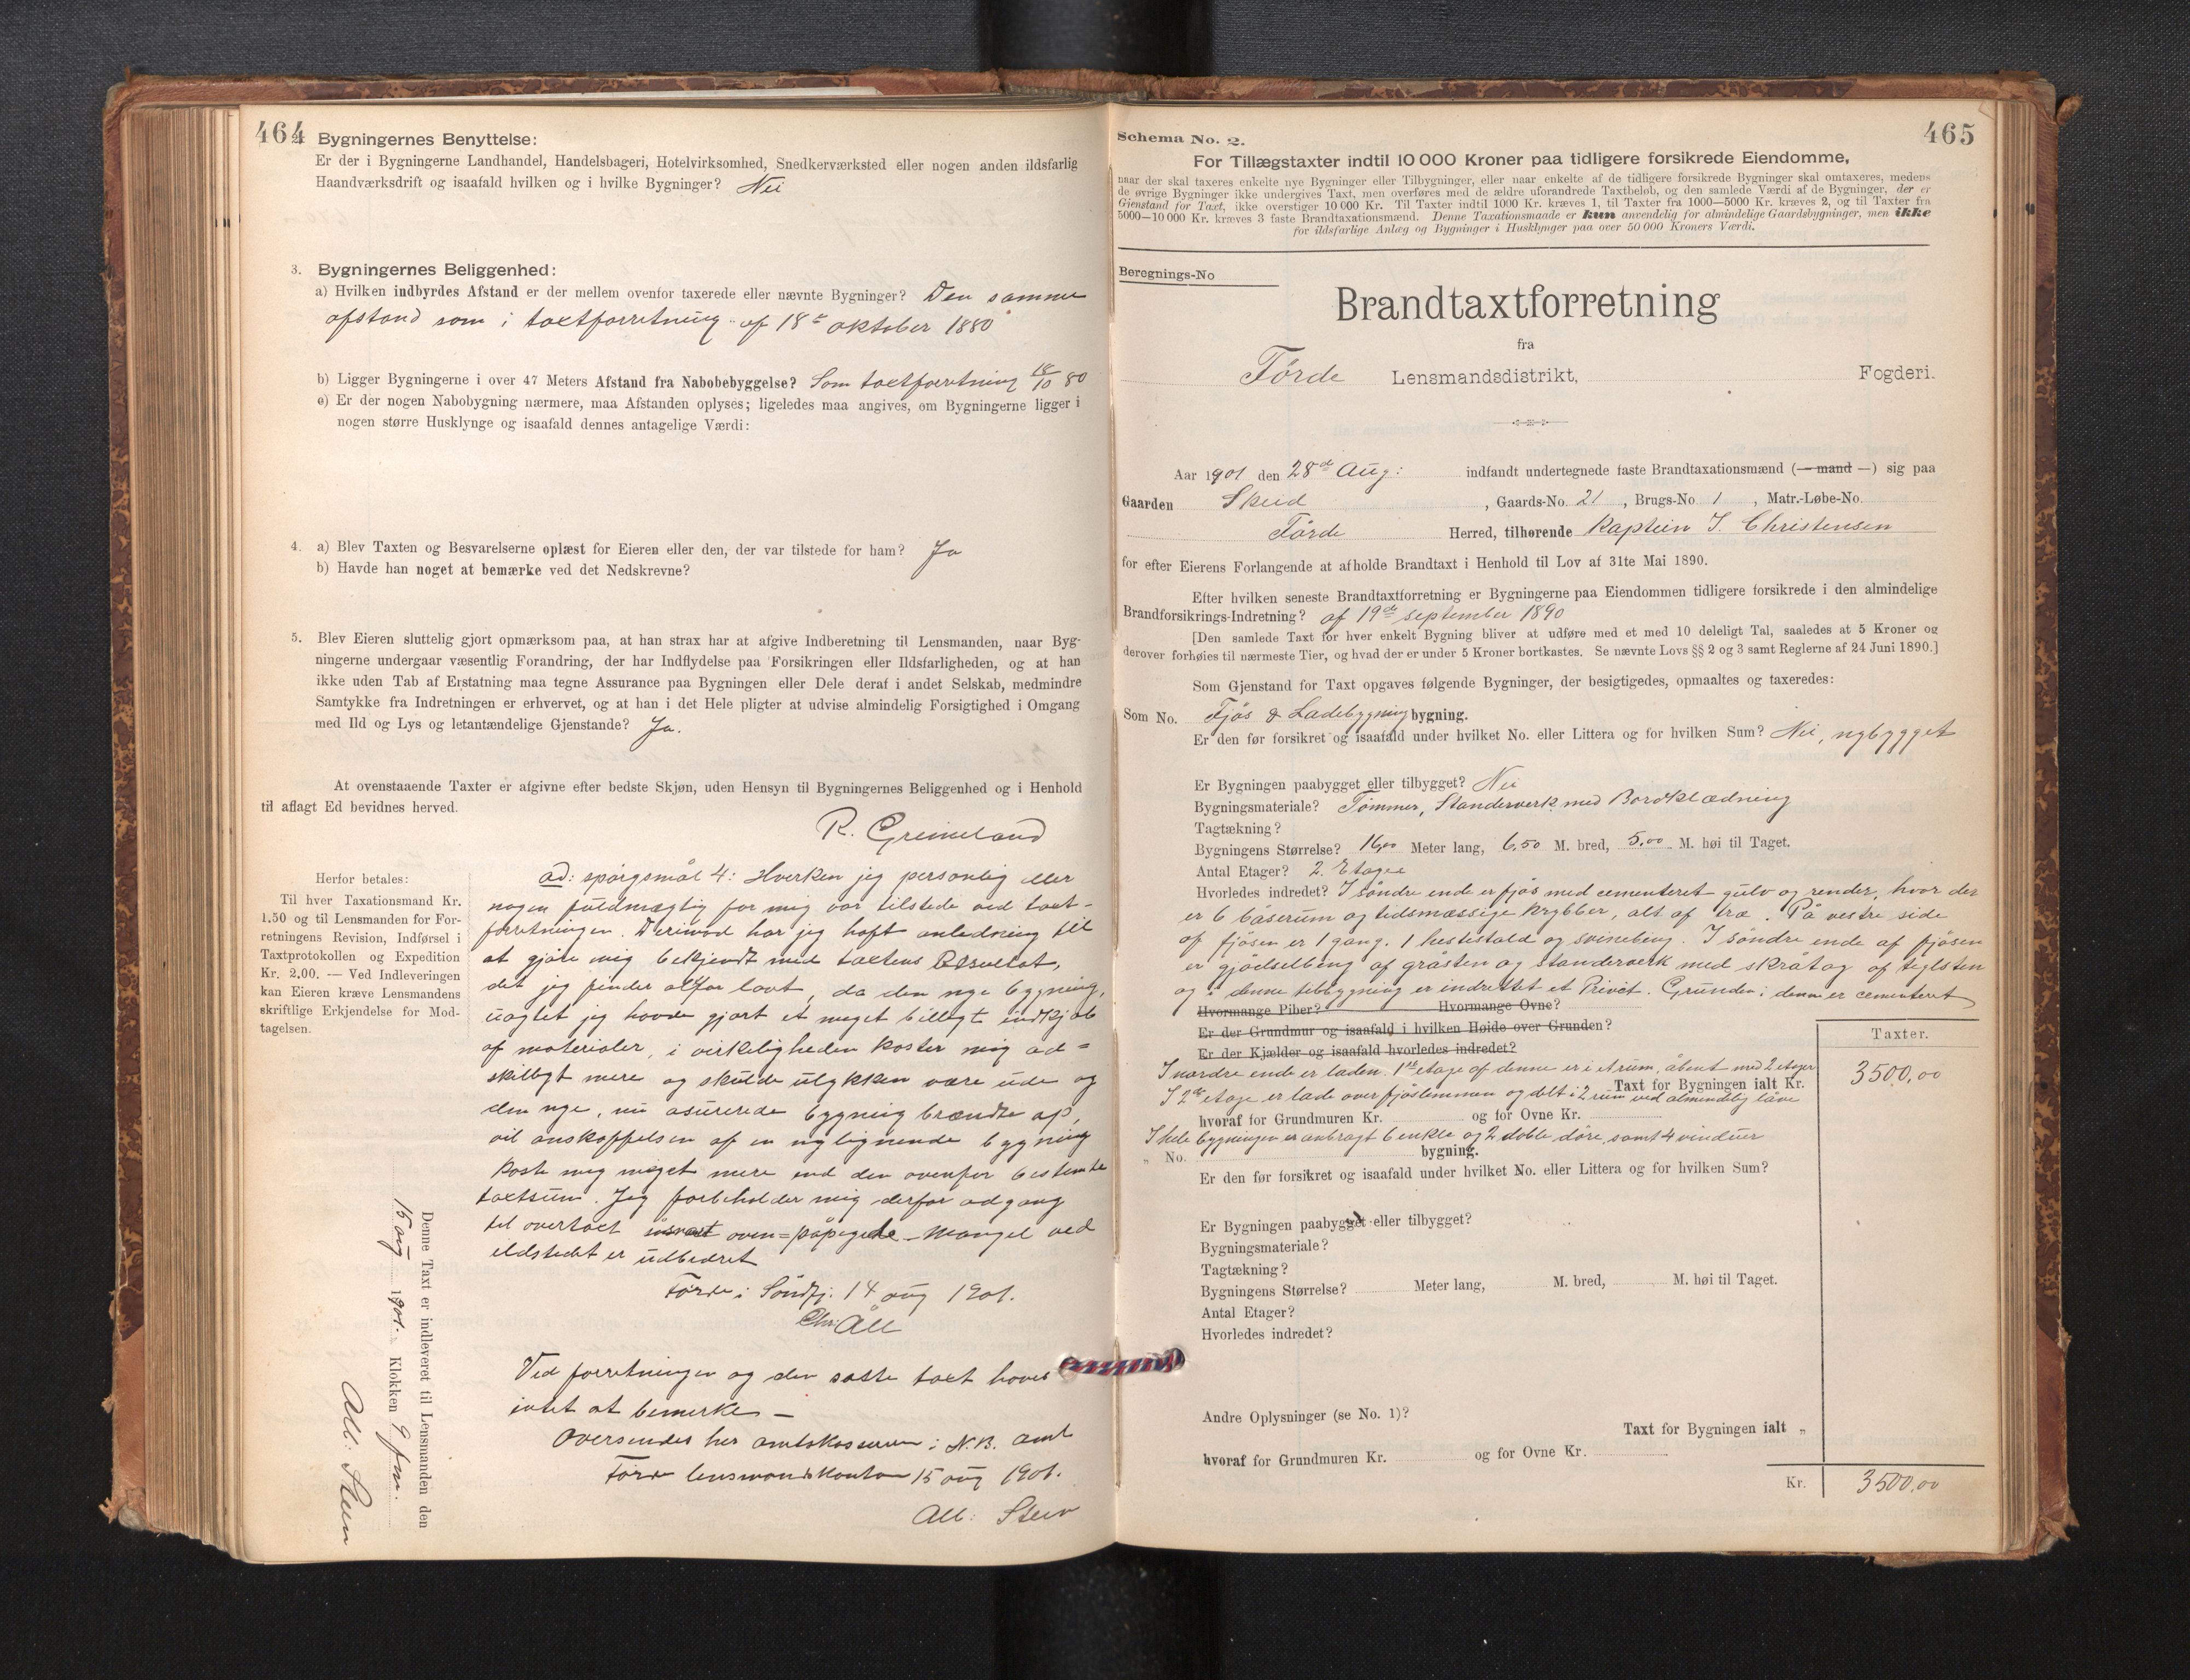 464
Bygningernes Benyttelse:
Er der i Bygningerne Landhandel, Handelsbageri, Hotelvirksomhed, Snedkerværksted eller nogen anden ildsfarlig
Haandværksdrift og isaafald hvilken og i hvilke Bygninger? Nei
3. Bygningernes Beliggenhed:
a) Hvilken indbyrdes Afstand er der mellem ovenfor taxerede eller nævnte Bygninger? Den samme
afstand som i taxtforretning af 18de oktober 1880
b) Ligger Bygningerne i over 47 Meters Afstand fra Nabobebyggelse? Som taxtforretning 18/10 80
c) Er der nogen Nabobygning nærmere, maa Afstanden oplyses; ligeledes maa angives, om Bygningerne ligger i
nogen større Husklynge og isaafald dennes antagelige Værdi:
4. a) Blev Taxten og Besvarelserne oplæst for Eieren eller den, der var tilstede for ham? Ja
b) Havde han noget at bemærke ved det Nedskrevne?
5. Blev Eieren sluttelig gjort opmærksom paa, at han strax har at afgive Indberetning til Lensmanden, naar Byg-
ningerne undergaar væsentlig Forandring, der har Indflydelse paa Forsikringen eller Ildsfarligheden, og at han
ikke uden Tab af Erstatning maa tegne Assurance paa Bygningen eller Dele deraf i andet Selskab, medmindre
Samtykke fra Indretningen er erhvervet, og at han i det Hele pligter at udvise almindelig Forsigtighed i Omgang
med Ild og Lys og letantændelige Gjenstande? Ja.
At ovenstaaende Taxter er afgivne efter bedste Skjøn, uden Hensyn til Bygningernes Beliggenhed og i Henhold
til aflagt Ed bevidnes herved.
R. Grimeland
Herfor betales:
Til hver Taxationsmand Kr.
1.50 og til Lensmanden for For-
retningens Revision, Indførsel i
Taxtprotokollen og Expedition
Kr. 2.00. — Ved Indleveringen
kan Eieren kræve Lensmandens
skriftlige Erkjendelse for Mod-
tagelsen.
ad: spørgsmål 4: Hverken jeg personlig eller
nogen fuldmægtig for mig var tilstede ved taxt-
forretningen. Derimod har jeg haft anledning til
at gjøre mig bekjendt med taxtens Resultat,
det jeg finder altfor lavt, da den nye bygning,
uagtet jeg havde gjort et meget billigt indkjøb
af materialer, i virkeligheden koster mig ad=
skilligt mere og skulde ulykken være ude og
den nye, nu asurerede bygning brændte op,
vil anskaffelsen af en ny lignende bygning
koste mig meget mere end den ovenfor bestemte
taxtsum. Jeg forbeholder mig derfor adgang
til overtaxt oven=påpegede mangel ved
ildstedet er udbedret
Førde i Søndfj. 14 aug 1901.
Chr. Åll
Ved forretningen og den satte taxt haves
intet at bemerke —
Oversendes her amtskasserer i N.B. amt
Førde lensmandskontor 15 aug 1901.
All: Steen
Denne Taxt er indleveret til Lensmanden den
15 aug 1901. Klokken 9 fm.
All: Steen
465
Schema No. 2.
For Tillægstaxter indtil 10 000 Kroner paa tidligere forsikrede Eiendomme,
naar der skal taxeres enkelte nye Bygninger eller Tilbygninger, eller naar enkelte af de tidligere forsikrede Bygninger skal omtaxeres, medens
de øvrige Bygninger ikke undergives Taxt, men overføres med de ældre uforandrede Taxtbeløb, og den samlede Værdi af de Bygninger, der er
Gjenstand for Taxt, ikke overstiger 10 000 Kr. Til Taxter indtil 1000 Kr. kræves 1, til Taxter fra 1000—5000 Kr. kræves 2, og til Taxter fra
5000—10 000 Kr. kræves 3 faste Brandtaxationsmænd. Denne Taxationsmaade er kun anvendelig for almindelige Gaardsbygninger, men ikke
for ildsfarlige Anlæg og Bygninger i Husklynger paa over 50 000 Kroners Værdi.
Beregnings-No
Brandtaxtforretning
fra
Førde Lensmandsdistrikt, Fogderi.
Aar 1901 den 28de Aug: indfandt undertegnede faste Brandtaxationsmænd (— mand —) sig paa
Gaarden Skeid, Gaards-No. 21, Brugs-No 1, Matr.-Løbe-No.
Førde Herred, tilhørende Kaptein J. Christensen
for efter Eierens Forlangende at afholde Brandtaxt i Henhold til Lov af 31te Mai 1890.
Efter hvilken seneste Brandtaxtforretning er Bygningerne paa Eiendommen tidligere forsikrede i den almindelige
Brandforsikrings-Indretning? af 19de september 1890
[Den samlede Taxt for hver enkelt Bygning bliver at udføre med et med 10 deleligt Tal, saaledes at 5 Kroner og
derover forhøies til nærmeste Tier, og hvad der er under 5 Kroner bortkastes. Se nævnte Lovs §§ 2 og 3 samt Reglerne af 24 Juni 1890.]
Som Gjenstand for Taxt opgaves følgende Bygninger, der besigtigedes, opmaaltes og taxeredes:
Som No. Fjøs & Ladebygning bygning.
Er den før forsikret og isaafald under hvilket No. eller Littera og for hvilken Sum? Nei, nybygget
Er Bygningen paabygget eller tilbygget? Nei
Bygningsmateriale? Tømmer, Standerverk med Bordklædning
Tagtækning?
Bygningens Størrelse? 16,00 Meter lang, 6,50 M. bred, 5,00 M. høi til Taget.
Antal Etager? 2. Etager
Hvorledes indredet? I søndre ende er fjøs med cementeret gulv og render, hvor der
er 6 båserum og tidsmæssige krybber, alt af træ. På vestre side
af fjøsen er 1 gang. 1 hestestald og svinebing. I søndre ende af fjøsen
er gjødselbing af gråsten og standerverk med skråtag af teglsten
og i denne tilbygning er indrettet et Privet. Grunden i denne er cementeret
Hvormange Piber? Hvormange Ovne?
Er der Grundmur og isaafald i hvilken Høide over Grunden?
Er der Kjælder og isaafald hvorledes indredet?
Taxter.
I nordre ende er laden. 1ste etage af denne er i et rum, åbent med 2 etager
Taxt for Bygningen ialt Kr. 3500,00
I 2den etage er lade over fjøslemmen og delt i 2 rum ved almindelig låve
hvoraf for Grundmuren Kr. og for Ovne Kr.
I hele bygningen er anbragt 6 enkle og 2 doble døre, samt 4 vinduer
„ No. bygning.
Er den før forsikret og isaafald under hvilket No. eller Littera og for hvilken Sum?
Er Bygningen paabygget eller tilbygget?
Bygningsmateriale?
Tagtækning?
Bygningens Størrelse? Meter lang, M. bred, M. høi til Taget.
Antal Etager?
Hvorledes indredet?
Andre Oplysninger (se No. 1)?
Taxt for Bygningen ialt „
hvoraf for Grundmuren Kr. og for Ovne Kr.
Kr. 3500,00